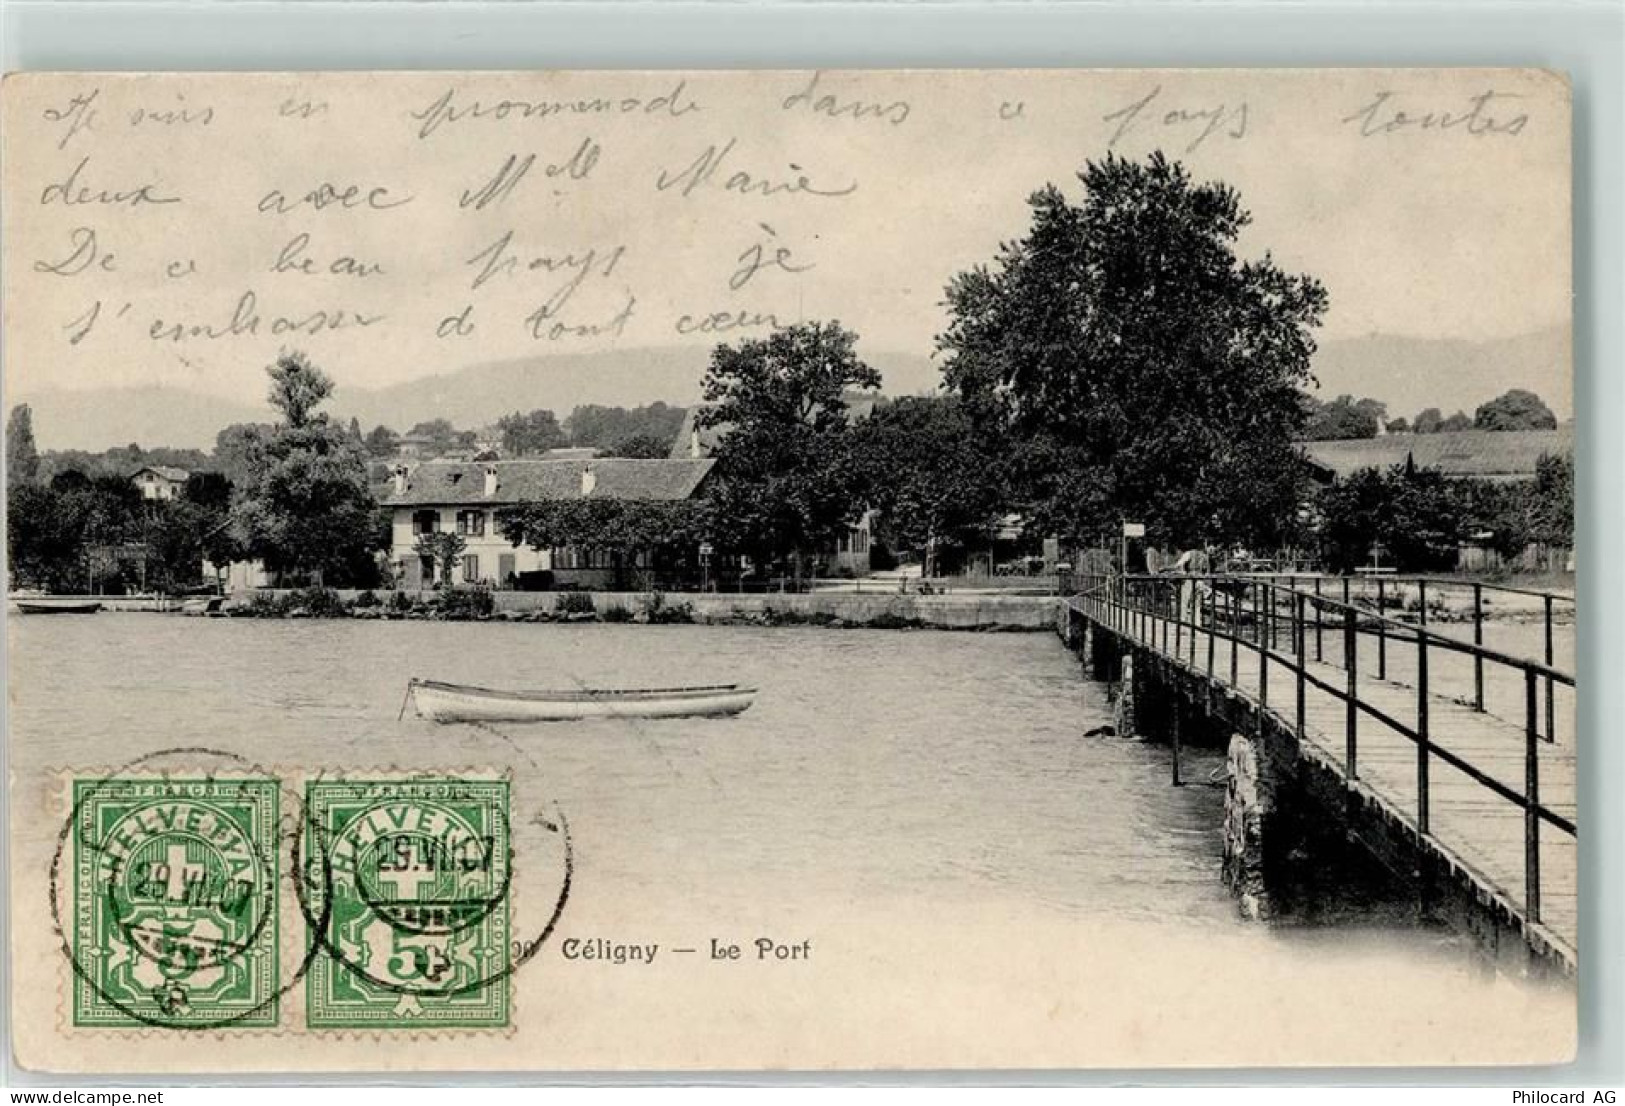 Je suis en promenade dans ce pays toutes
deux avec Mlle Marie
De ce beau pays je
t'embrasse de tout cœur
FRANCO FRANCO
HELVETIA HELVETIA
FRANCO FRANCO
29.VII.07 29.VII.07
5 5
Céligny — Le Port
Philocard AG